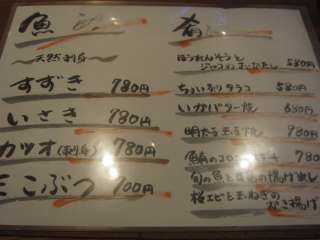 魚
〜天然刺身〜
すずき 780円
いさき 780円
カツオ(刺身) 780円
こぶつ 100円
肴
ほうれんそうと
おひたし 580円
ちょいあぶりタラコ 580円
いかバター焼 650円
明太玉子焼 780円
鯖のコロッケ 780
旬の魚と 揚げ出し
桜エビと玉ねぎの
かき揚げ